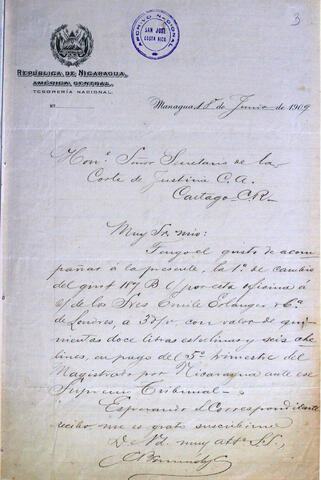 3
ARCHIVO NACIONAL
SAN JOSÉ
COSTA RICA
REPÚBLICA DE NICARAGUA,
AMÉRICA CENTRAL.
TESORERÍA NACIONAL.
Nº
Managua, 1º de Junio de 1909
Honº. Señor Secretario de la
Corte de Justicia C. A.
Cartago C.R.
Muy Sr. mio:
Tengo el gusto de acom
pañar á la presente, la 1ª de cambio
del giro # 187 B c/ por esta oficina á
c/ de los Sres Emile Erlanger & Cª.
de Londres, a 3 d/v, con valor de qui
nientas doce libras esterlinas y seis che
lines, en pago del 5º trimestre del
Magistrado por Nicaragua ante ese
Supremo Tribunal.
Esperando el correspondiente
recibo me es grato suscribirme
De Ud. muy attº S.S.,